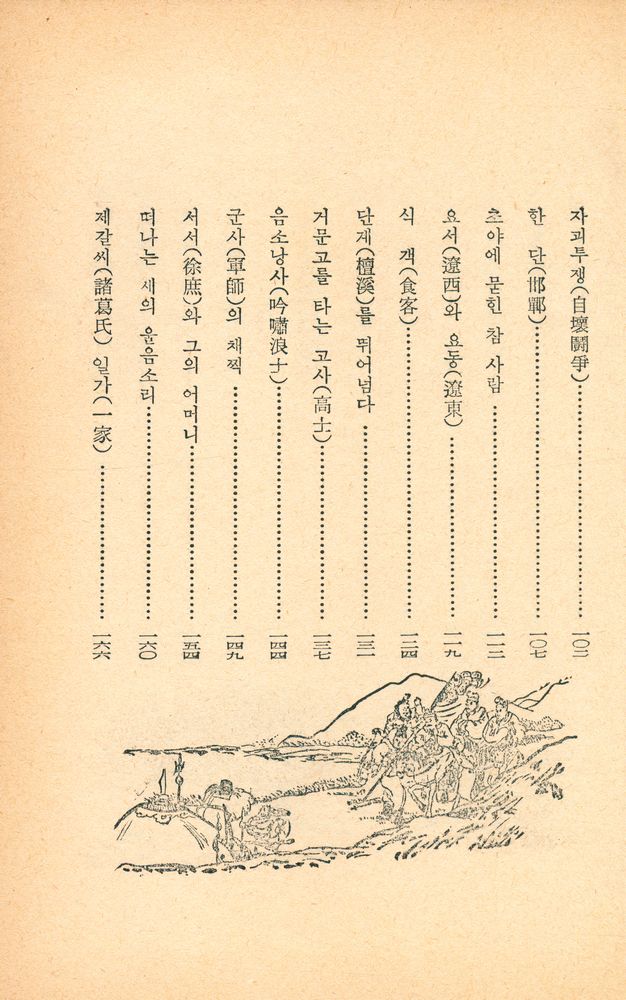 자괴투쟁(自壞鬪爭)……一〇二
한 단(邯鄲)……一〇七
초야에 묻힌 참 사람……一一二
요서(遼西)와 요동(遼東)……一一九
식 객(食客)……一二四
단계(檀溪)를 뛰어넘다……一三一
거문고를 타는 고사(高士)……一三七
음소낭사(吟嘯浪士)……一四四
군사(軍師)의 채찍……一四九
서서(徐庶)와 그의 어머니……一五四
떠나는 새의 울음소리……一六〇
제갈씨(諸葛氏) 일가(一家)……一六六